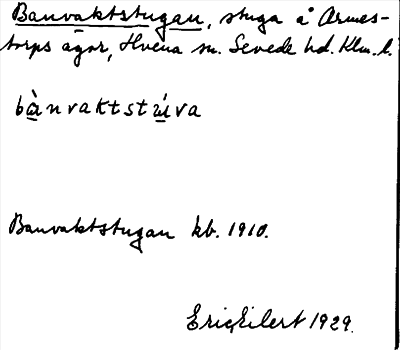 Banvaktstugan, stuga å Armes-
torps ägor, Hvena sn. Sevede hd. Klm. l.
bànvaktstúva
Banvaktstugan kb. 1910.
Eric Eilert 1929.